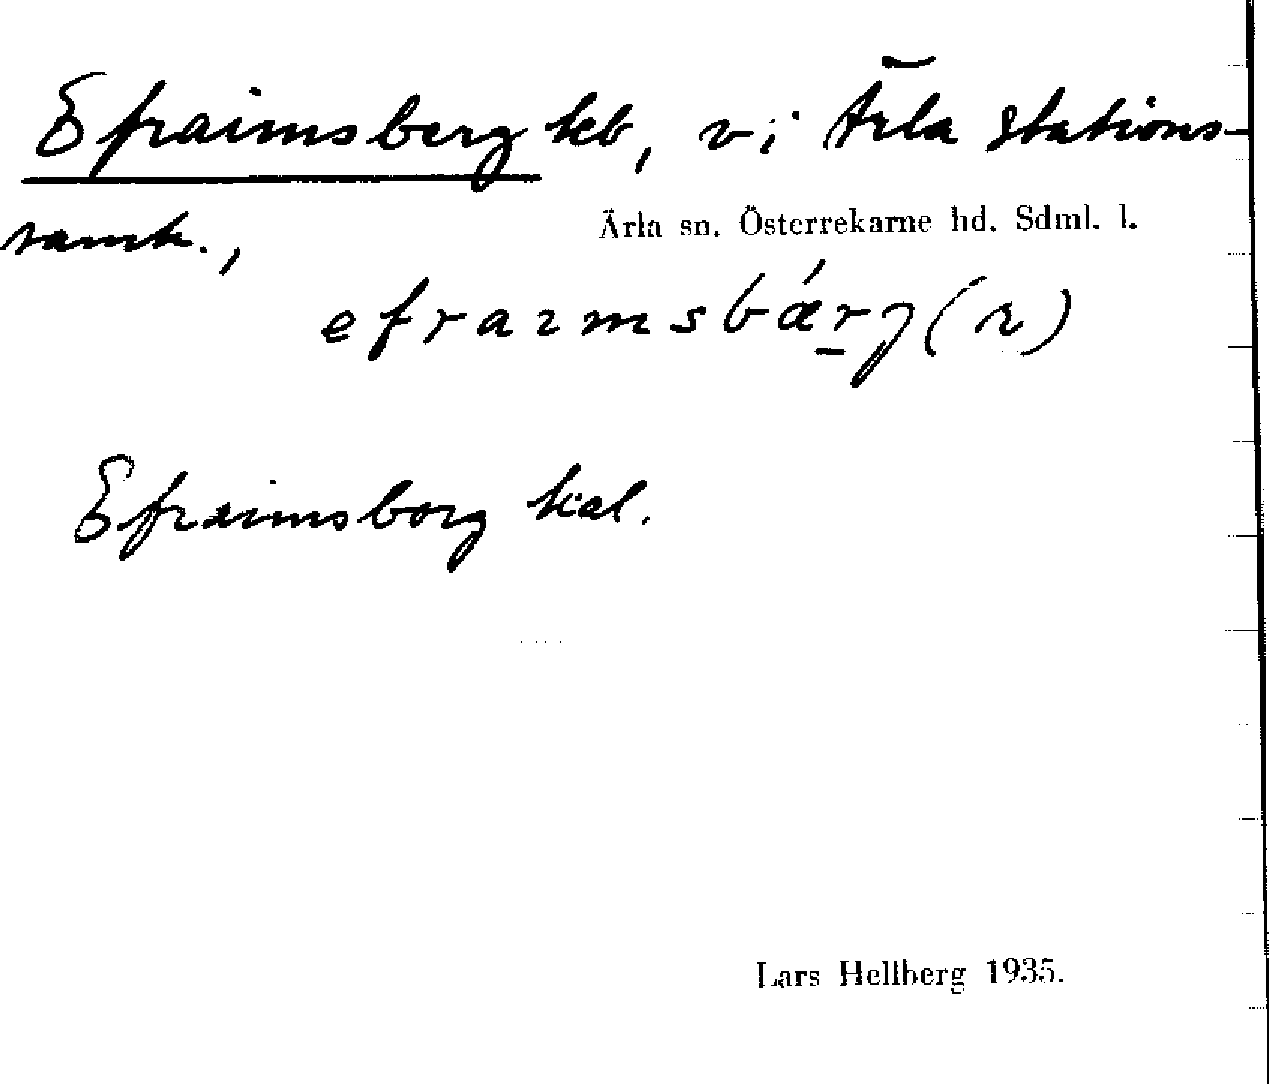 Efraimsberg lcb, vi Ärla stations-
samh.,
Ärla sn. Österrekarne hd. Sdml. l.
efraɪmsbǽrg(ɪ)
Efraimsborg kal.
Lars Hellberg 1935.